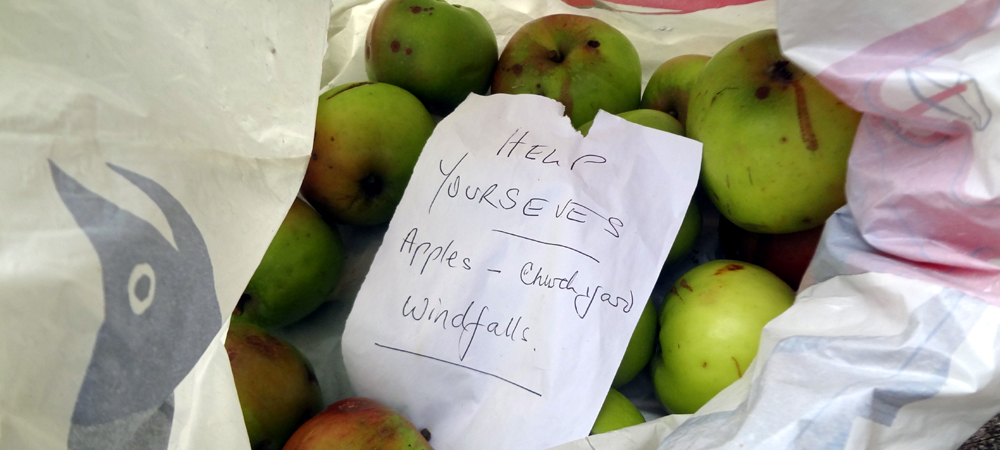 HELP
YOURSEVES
Apples - Churchyard
Windfalls.